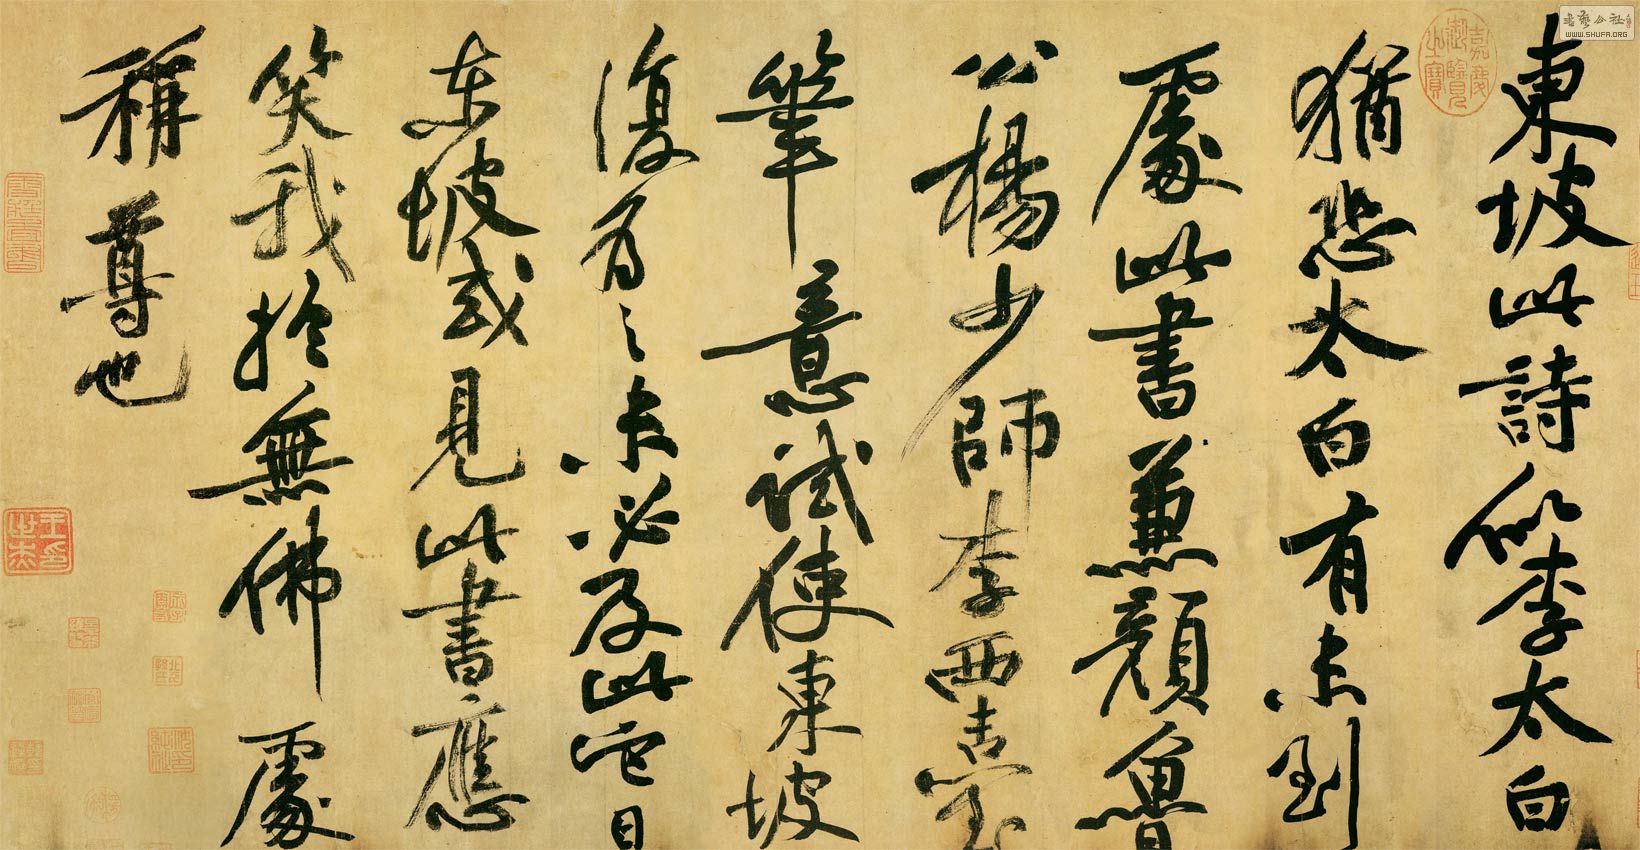 東坡此詩似李太白
猶恐太白有未到
處此書兼顏魯
公楊少師李西臺
筆意試使東坡
復為之未必及此它日
東坡或見此書應
笑我於無佛處
稱尊也
嘉慶御覽之寶
WWW.SHUFA.ORG